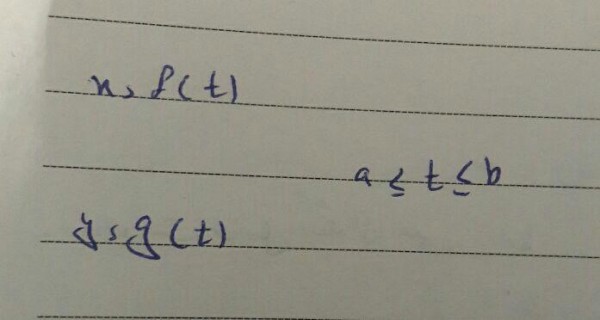 x = f(t)
a ≤ t ≤ b
y = g(t)